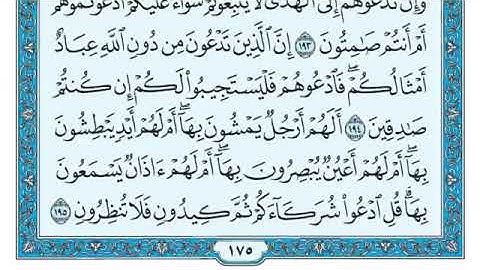 وَإِن تَدْعُوهُمْ إِلَى ٱلْهُدَىٰ لَا يَتَّبِعُوكُمْ سَوَآءٌ عَلَيْكُمْ أَدَعَوْتُمُوهُمْ
أَمْ أَنتُمْ صَٰمِتُونَ ١٩٣ إِنَّ ٱلَّذِينَ تَدْعُونَ مِن دُونِ ٱللَّهِ عِبَادٌ
أَمْثَالُكُمْ ۖ فَٱدْعُوهُمْ فَلْيَسْتَجِيبُوا۟ لَكُمْ إِن كُنتُمْ
صَٰدِقِينَ ١٩٤ أَلَهُمْ أَرْجُلٌ يَمْشُونَ بِهَآ ۖ أَمْ لَهُمْ أَيْدٍ يَبْطِشُونَ
بِهَآ ۖ أَمْ لَهُمْ أَعْيُنٌ يُبْصِرُونَ بِهَآ ۖ أَمْ لَهُمْ ءَاذَانٌ يَسْمَعُونَ
بِهَا ۗ قُلِ ٱدْعُوا۟ شُرَكَآءَكُمْ ثُمَّ كِيدُونِ فَلَا تُنظِرُونِ ١٩٥
١٧٥